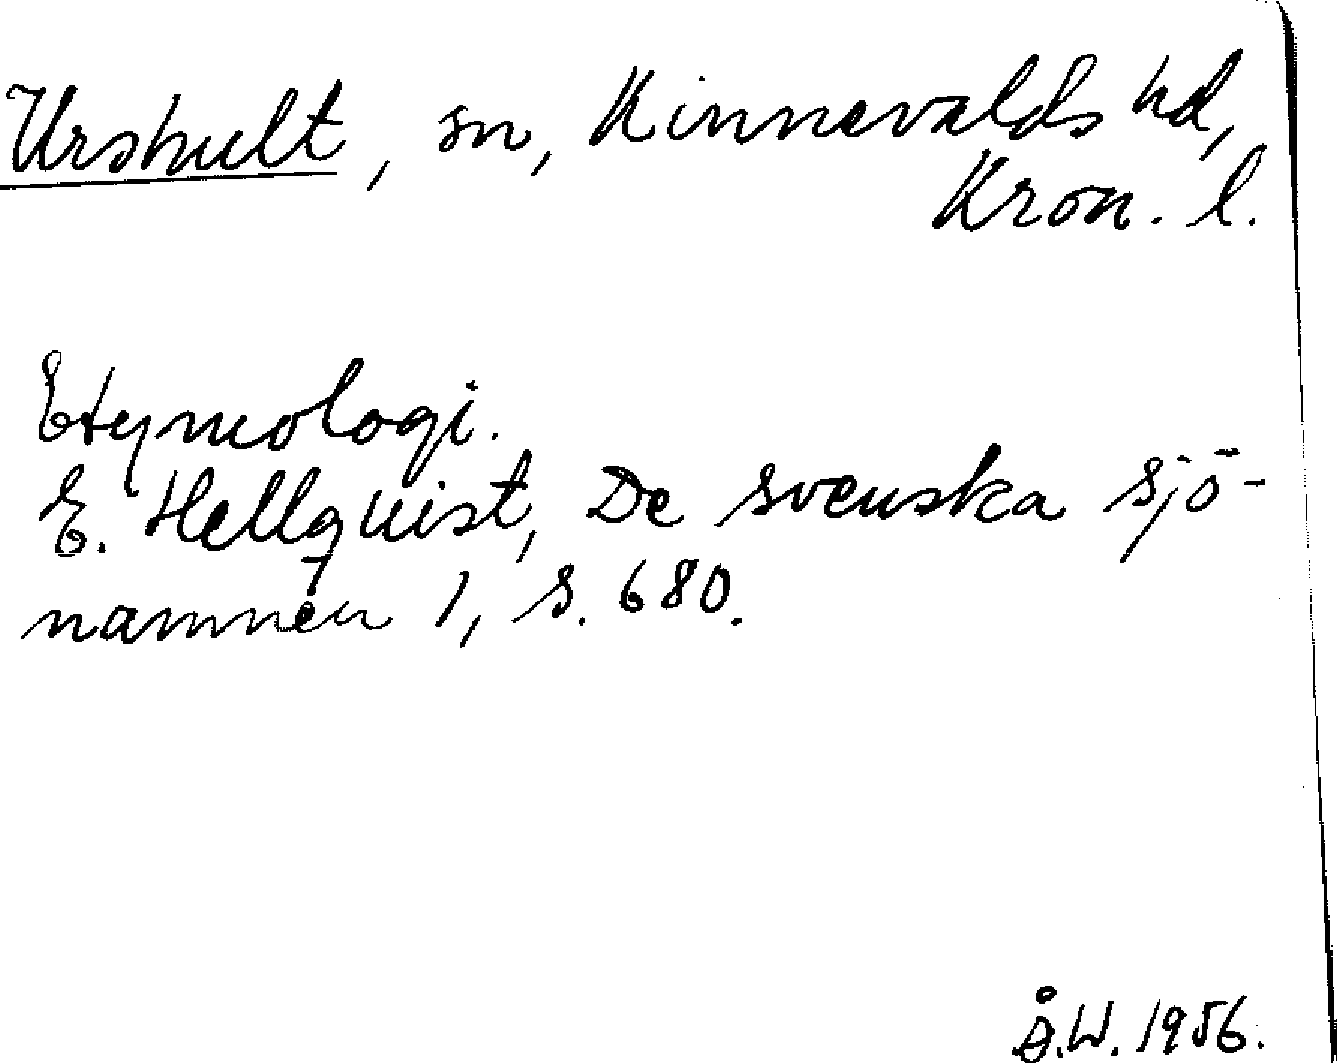 Urshult, sn, Kinnevalds hd,
Kron. l.
Etymologi.
E. Hellquist, De svenska sjö-
namnen 1, s. 680.
Å.W. 1956.